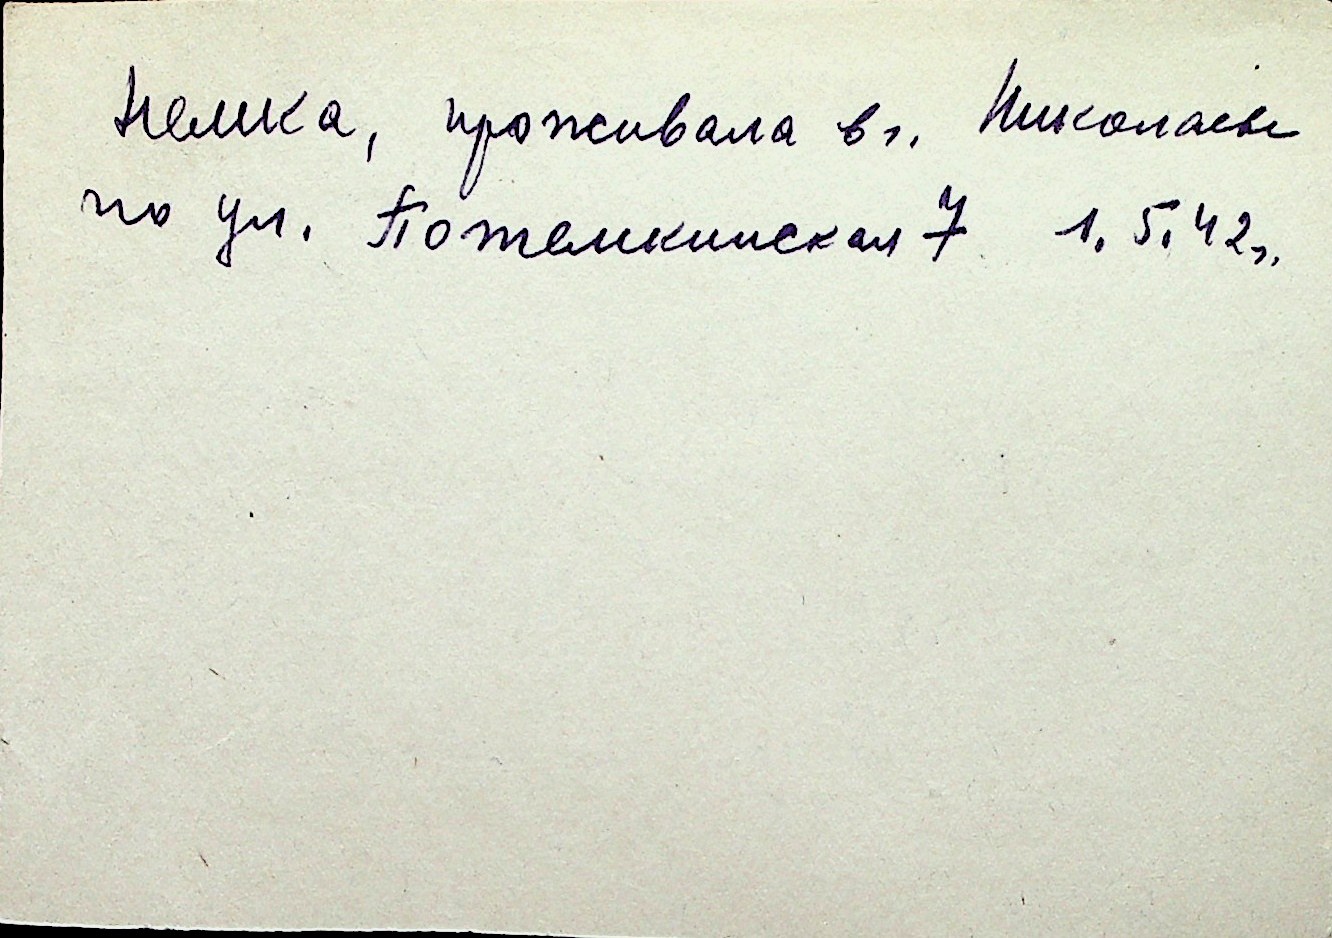 Немка, проживала в г. Николаеве
по ул. Потемкинская 7 1.5.42 г.